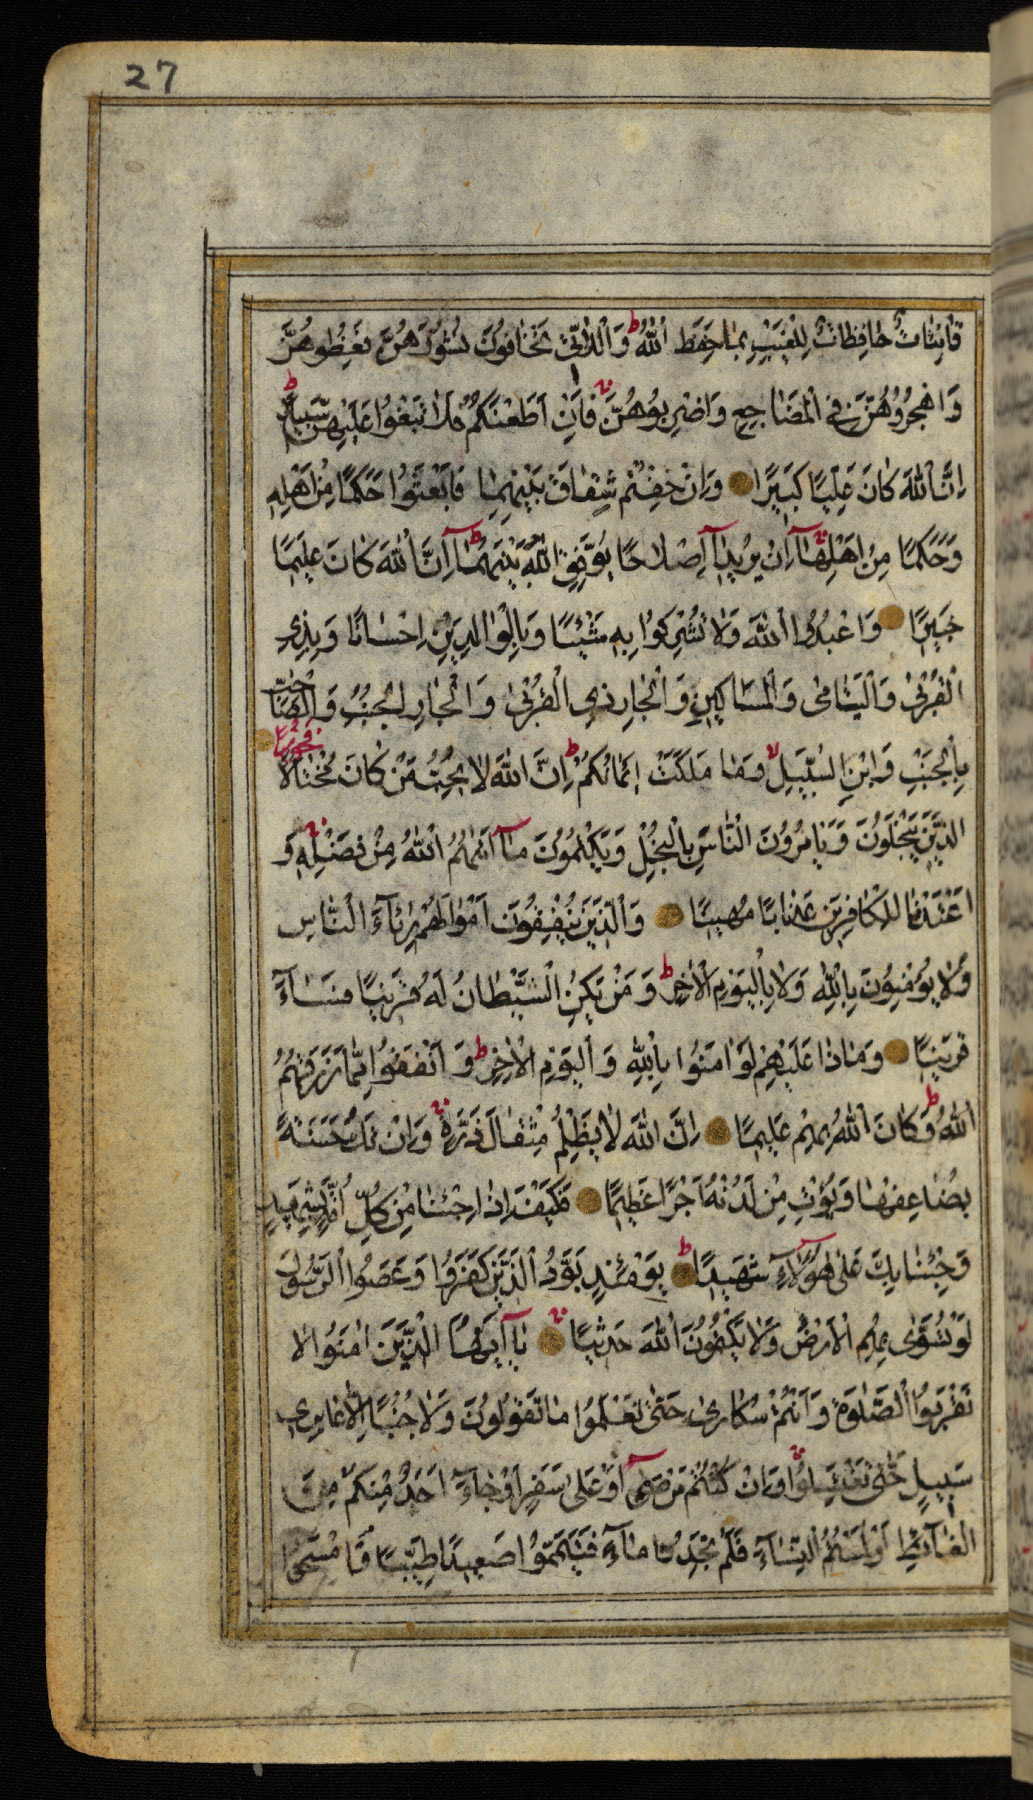 27
قانِتاتٌ حافِظاتٌ لِلْغَيْبِ بِما حَفِظَ اللّٰهُ ط وَالّٰاتى تَخافُونَ نُشُوزَهُنَّ فَعِظُوهُنَّ
وَاهْجُرُوهُنَّ فِى الْمَضاجِعِ وَاضْرِبُوهُنَّ فَاِنْ اَطَعْنَكُمْ فَلا تَبْغُوا عَلَيْهِنَّ سَبيلًا ط
اِنَّ اللّٰهَ كانَ عَلِيًّا كَبيرًا وَاِنْ خِفْتُمْ شِقاقَ بَيْنِهِما فَابْعَثُوا حَكَمًا مِنْ اَهْلِهِ
وَحَكَمًا مِنْ اَهْلِهآ اِنْ يُريدآ اِصْلاحًا يُوَفِّقِ اللّٰهُ بَيْنَهُما ط اِنَّ اللّٰهَ كانَ عَليمًا
خَبيرًا وَاعْبُدُوا اللّٰهَ وَلا تُشْرِكُوا بِهِ شَيْئًا وَبِالْوالِدَيْنِ اِحْسانًا وَبِذِى
الْقُرْبى وَالْيَتامى وَالْمَساكينِ وَالْجارِ ذِى الْقُرْبى وَالْجارِ الْجُنُبِ وَالصّاحِبِ
بِالْجَنْبِ وَابْنِ السَّبيلِ لا وَما مَلَكَتْ اَيْمانُكُمْ ط اِنَّ اللّٰهَ لا يُحِبُّ مَنْ كانَ مُخْتالًا فَخُورًا
الَّذينَ يَبْخَلُونَ وَيَامُرُونَ النّاسَ بِالْبُخْلِ وَيَكْتُمُونَ مآ اٰتٰهُمُ اللّٰهُ مِنْ فَضْلِهِ وَ
اَعْتَدْنا لِلْكافِرينَ عَذابًا مُهينًا وَالَّذينَ يُنْفِقُونَ اَمْوالَهُمْ رِئآءَ النّاسِ
وَلا يُؤْمِنُونَ بِاللّٰهِ وَلا بِالْيَوْمِ الْاٰخِرِ ط وَمَنْ يَكُنِ الشَّيْطانُ لَهُ قَرينًا فَسآءَ
قَرينًا وَماذا عَلَيْهِمْ لَوْ اٰمَنُوا بِاللّٰهِ وَالْيَوْمِ الْاٰخِرِ ط وَاَنْفَقُوا مِمّا رَزَقَهُمُ
اللّٰهُ ط وَكانَ اللّٰهُ بِهِمْ عَليمًا اِنَّ اللّٰهَ لا يَظْلِمُ مِثْقالَ ذَرَّةٍ وَاِنْ تَكُ حَسَنَةً
يُضاعِفْها وَيُؤْتِ مِنْ لَدُنْهُ اَجْرًا عَظيمًا فَكَيْفَ اِذا جِئْنا مِنْ كُلِّ اُمَّةٍ بِشَهيدٍ
وَجِئْنا بِكَ عَلى هٰؤُلآءِ شَهيدًا ط يَوْمَئِذٍ يَوَدُّ الَّذينَ كَفَرُوا وَعَصَوُا الرَّسُولَ
لَوْ تُسَوّى بِهِمُ الْاَرْضُ وَلا يَكْتُمُونَ اللّٰهَ حَديثًا يآ اَيُّهَا الَّذينَ اٰمَنُوا لا
تَقْرَبُوا الصَّلٰوةَ وَاَنْتُمْ سُكارى حَتّى تَعْلَمُوا ما تَقُولُونَ وَلا جُنُبًا اِلّا عابِرى
سَبيلٍ حَتّى تَغْتَسِلُوا وَاِنْ كُنْتُمْ مَرْضى اَوْ عَلى سَفَرٍ اَوْ جآءَ اَحَدٌ مِنْكُمْ مِنَ
الْغآئِطِ اَوْ لٰمَسْتُمُ النِّسآءَ فَلَمْ تَجِدُوا مآءً فَتَيَمَّمُوا صَعيدًا طَيِّبًا فَامْسَحُوا